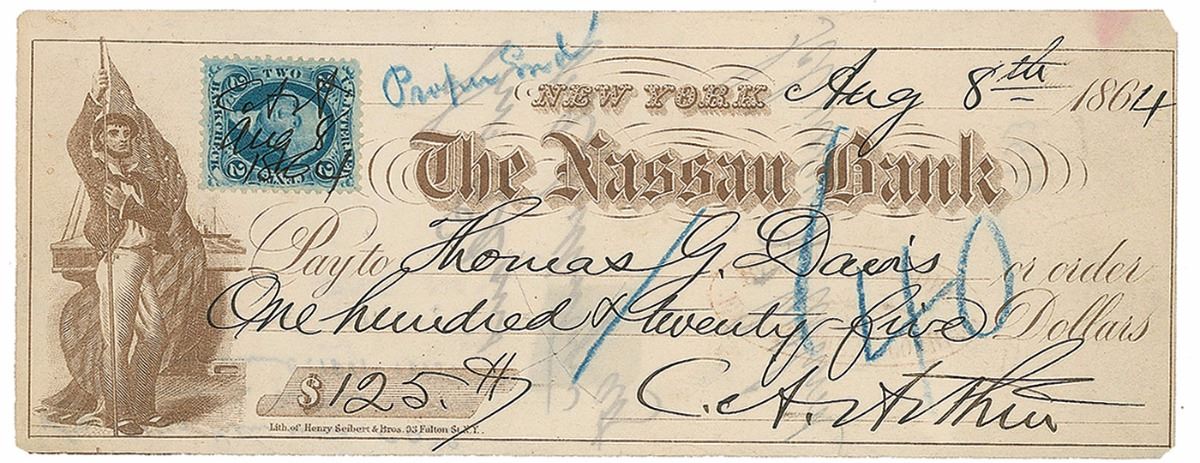 Proper End
NEW YORK Aug 8th 1864
TWO
CENTS
C A A
Aug 8
The Nassau Bank
Pay to Thomas G. Davis or order
One hundred & twenty-five Dollars
140
$125.
C. A. Arthur
Lith. of Henry Seibert & Bros. 93 Fulton St. N.Y.